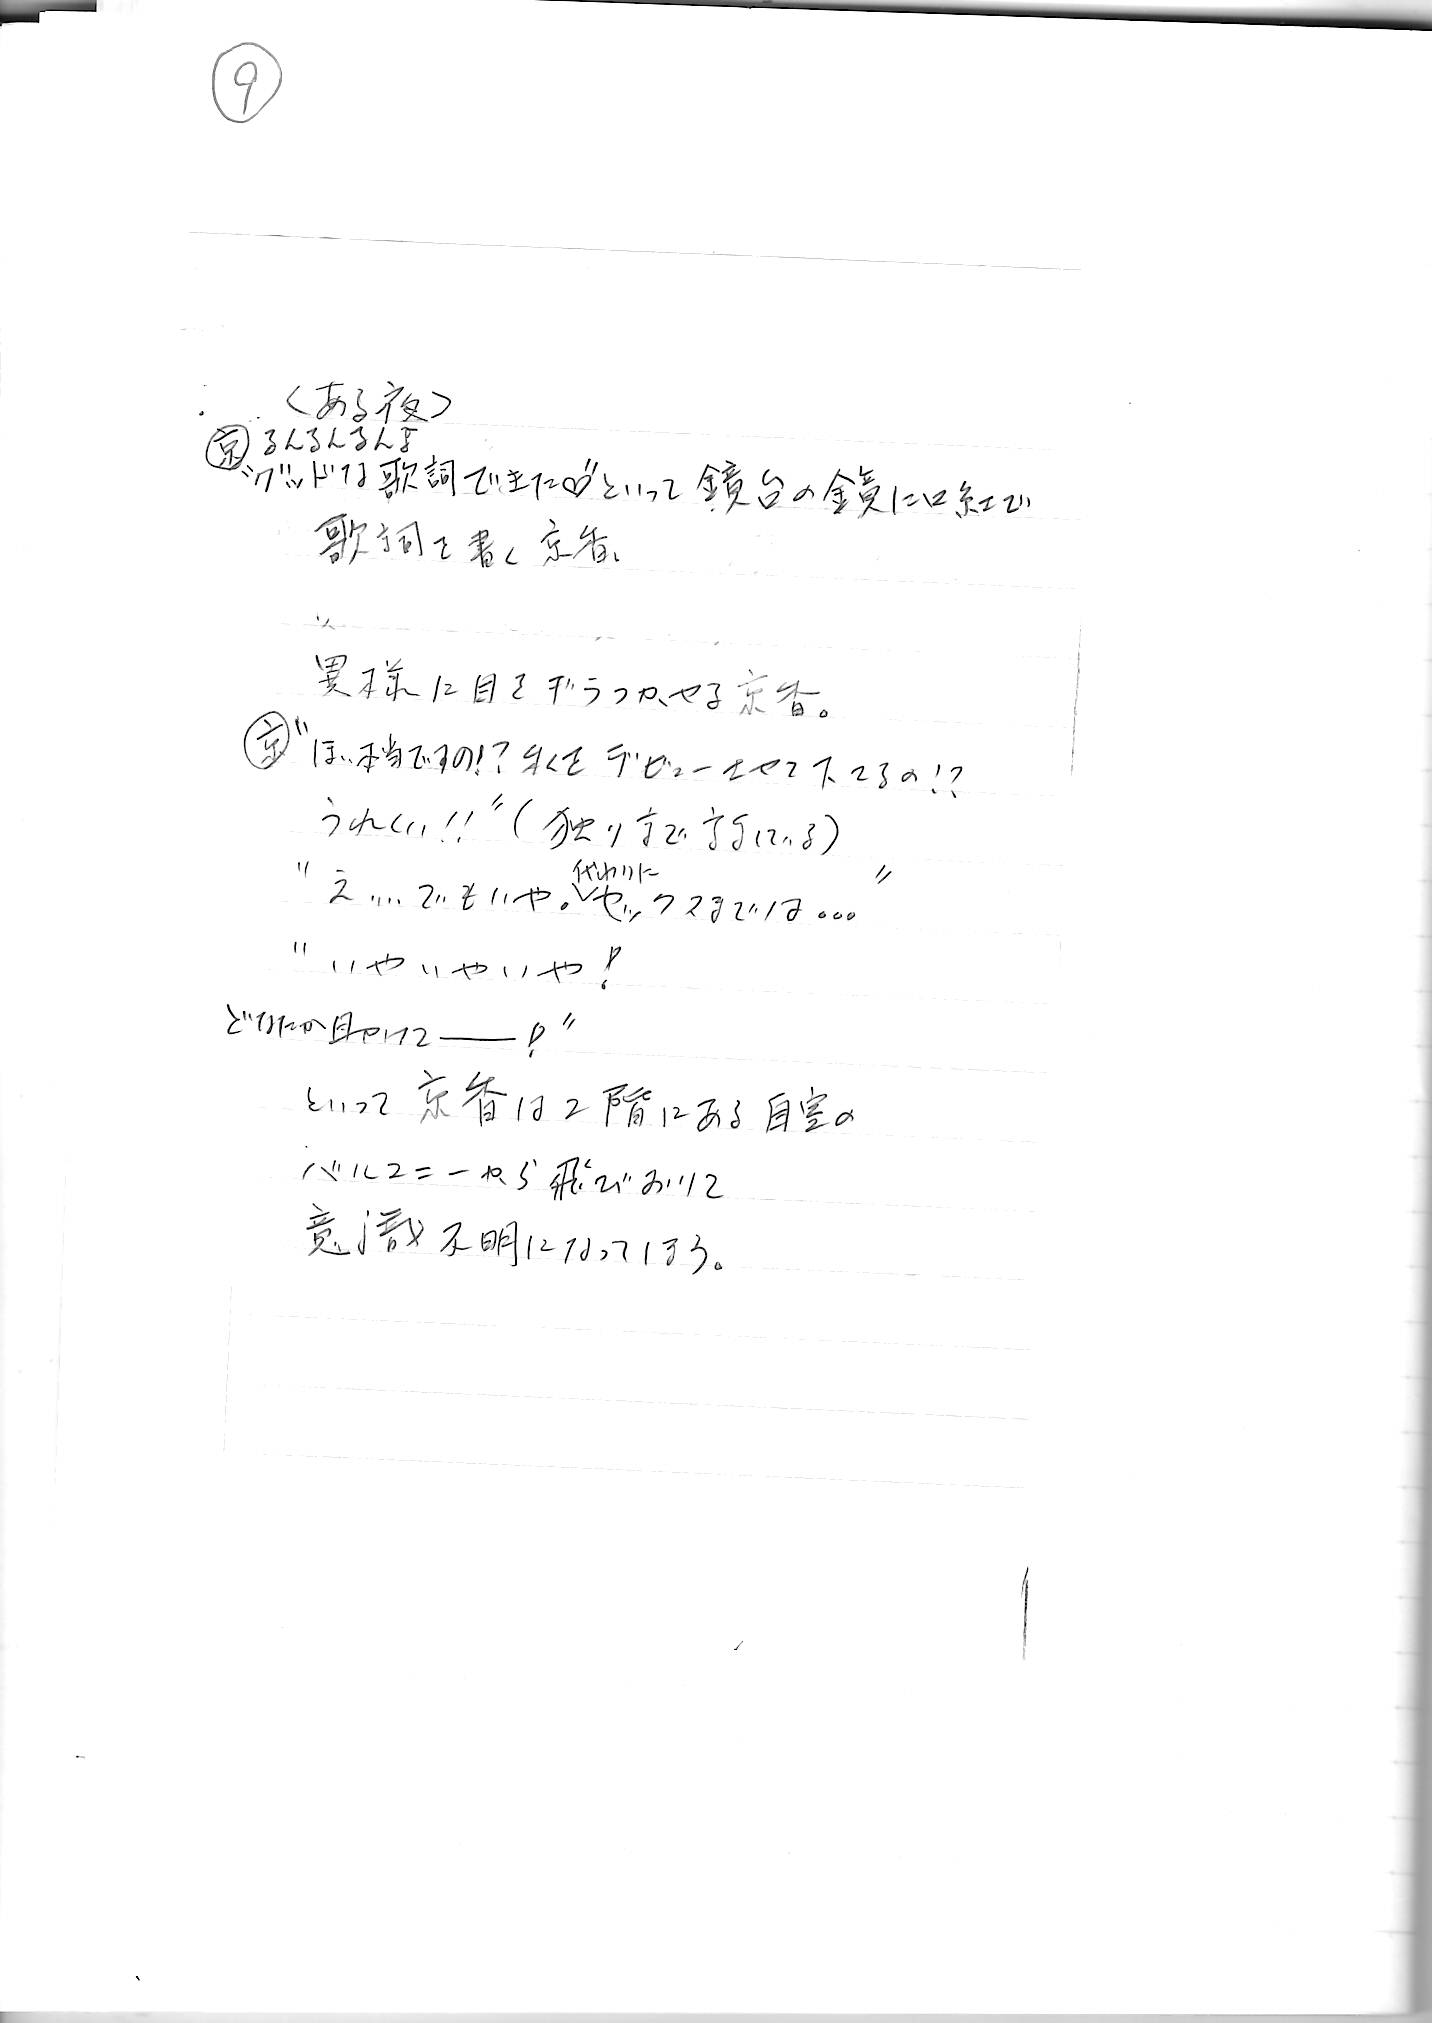 ⑨
〈ある夜〉
㊞京 るんるんるん
"グッドな歌詞できた♡"といって鏡台の鏡に口紅で
歌詞を書く京香、
異様に目をギラつかせる京香。
京 "ほ、本当ですの!? デビューさせて下さるの!?
うれしい!!"(独り言で言っている)
"え…でもいや。代わりにセックスまでは…"
"いやいやいや!
どなたか助けて――!"
といって京香は2階にある自室の
バルコニーから飛びおりて
意識不明になってしまう。